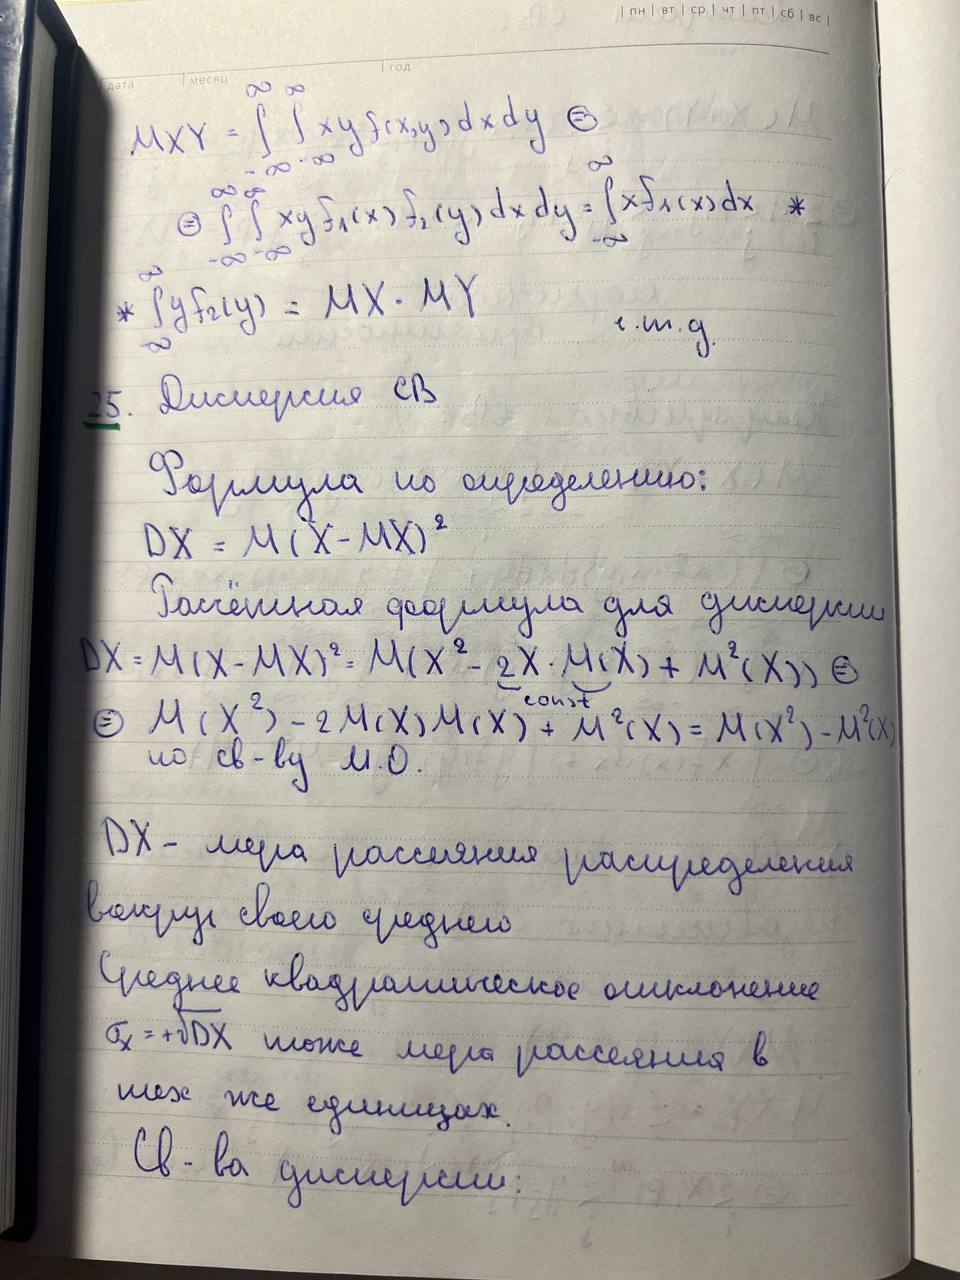 пн вт ср чт пт сб вс
дата месяц год
MXY = ∫_{-∞}^{∞} ∫_{-∞}^{∞} xy f(x,y) dx dy ⊜
⊜ ∫_{-∞}^{∞} ∫_{-∞}^{∞} xy f₁(x) f₂(y) dx dy = ∫_{-∞}^{∞} x f₁(x) dx *
* ∫_{-∞}^{∞} y f₂(y) = MX · MY
ч.т.д.
25. Дисперсия СВ
Формула по определению:
DX = M(X-MX)²
Расчётная формула для дисперсии
DX = M(X-MX)² = M(X² - 2X·M(X) + M²(X)) ⊜
const
⊜ M(X²) - 2M(X)M(X) + M²(X) = M(X²) - M²(X)
по св-ву М.О.
DX - мера рассеяния распределения
вокруг своего среднего
Среднее квадратическое отклонение
σₓ = +√DX тоже мера рассеяния в
тех же единицах.
Св-ва дисперсии: